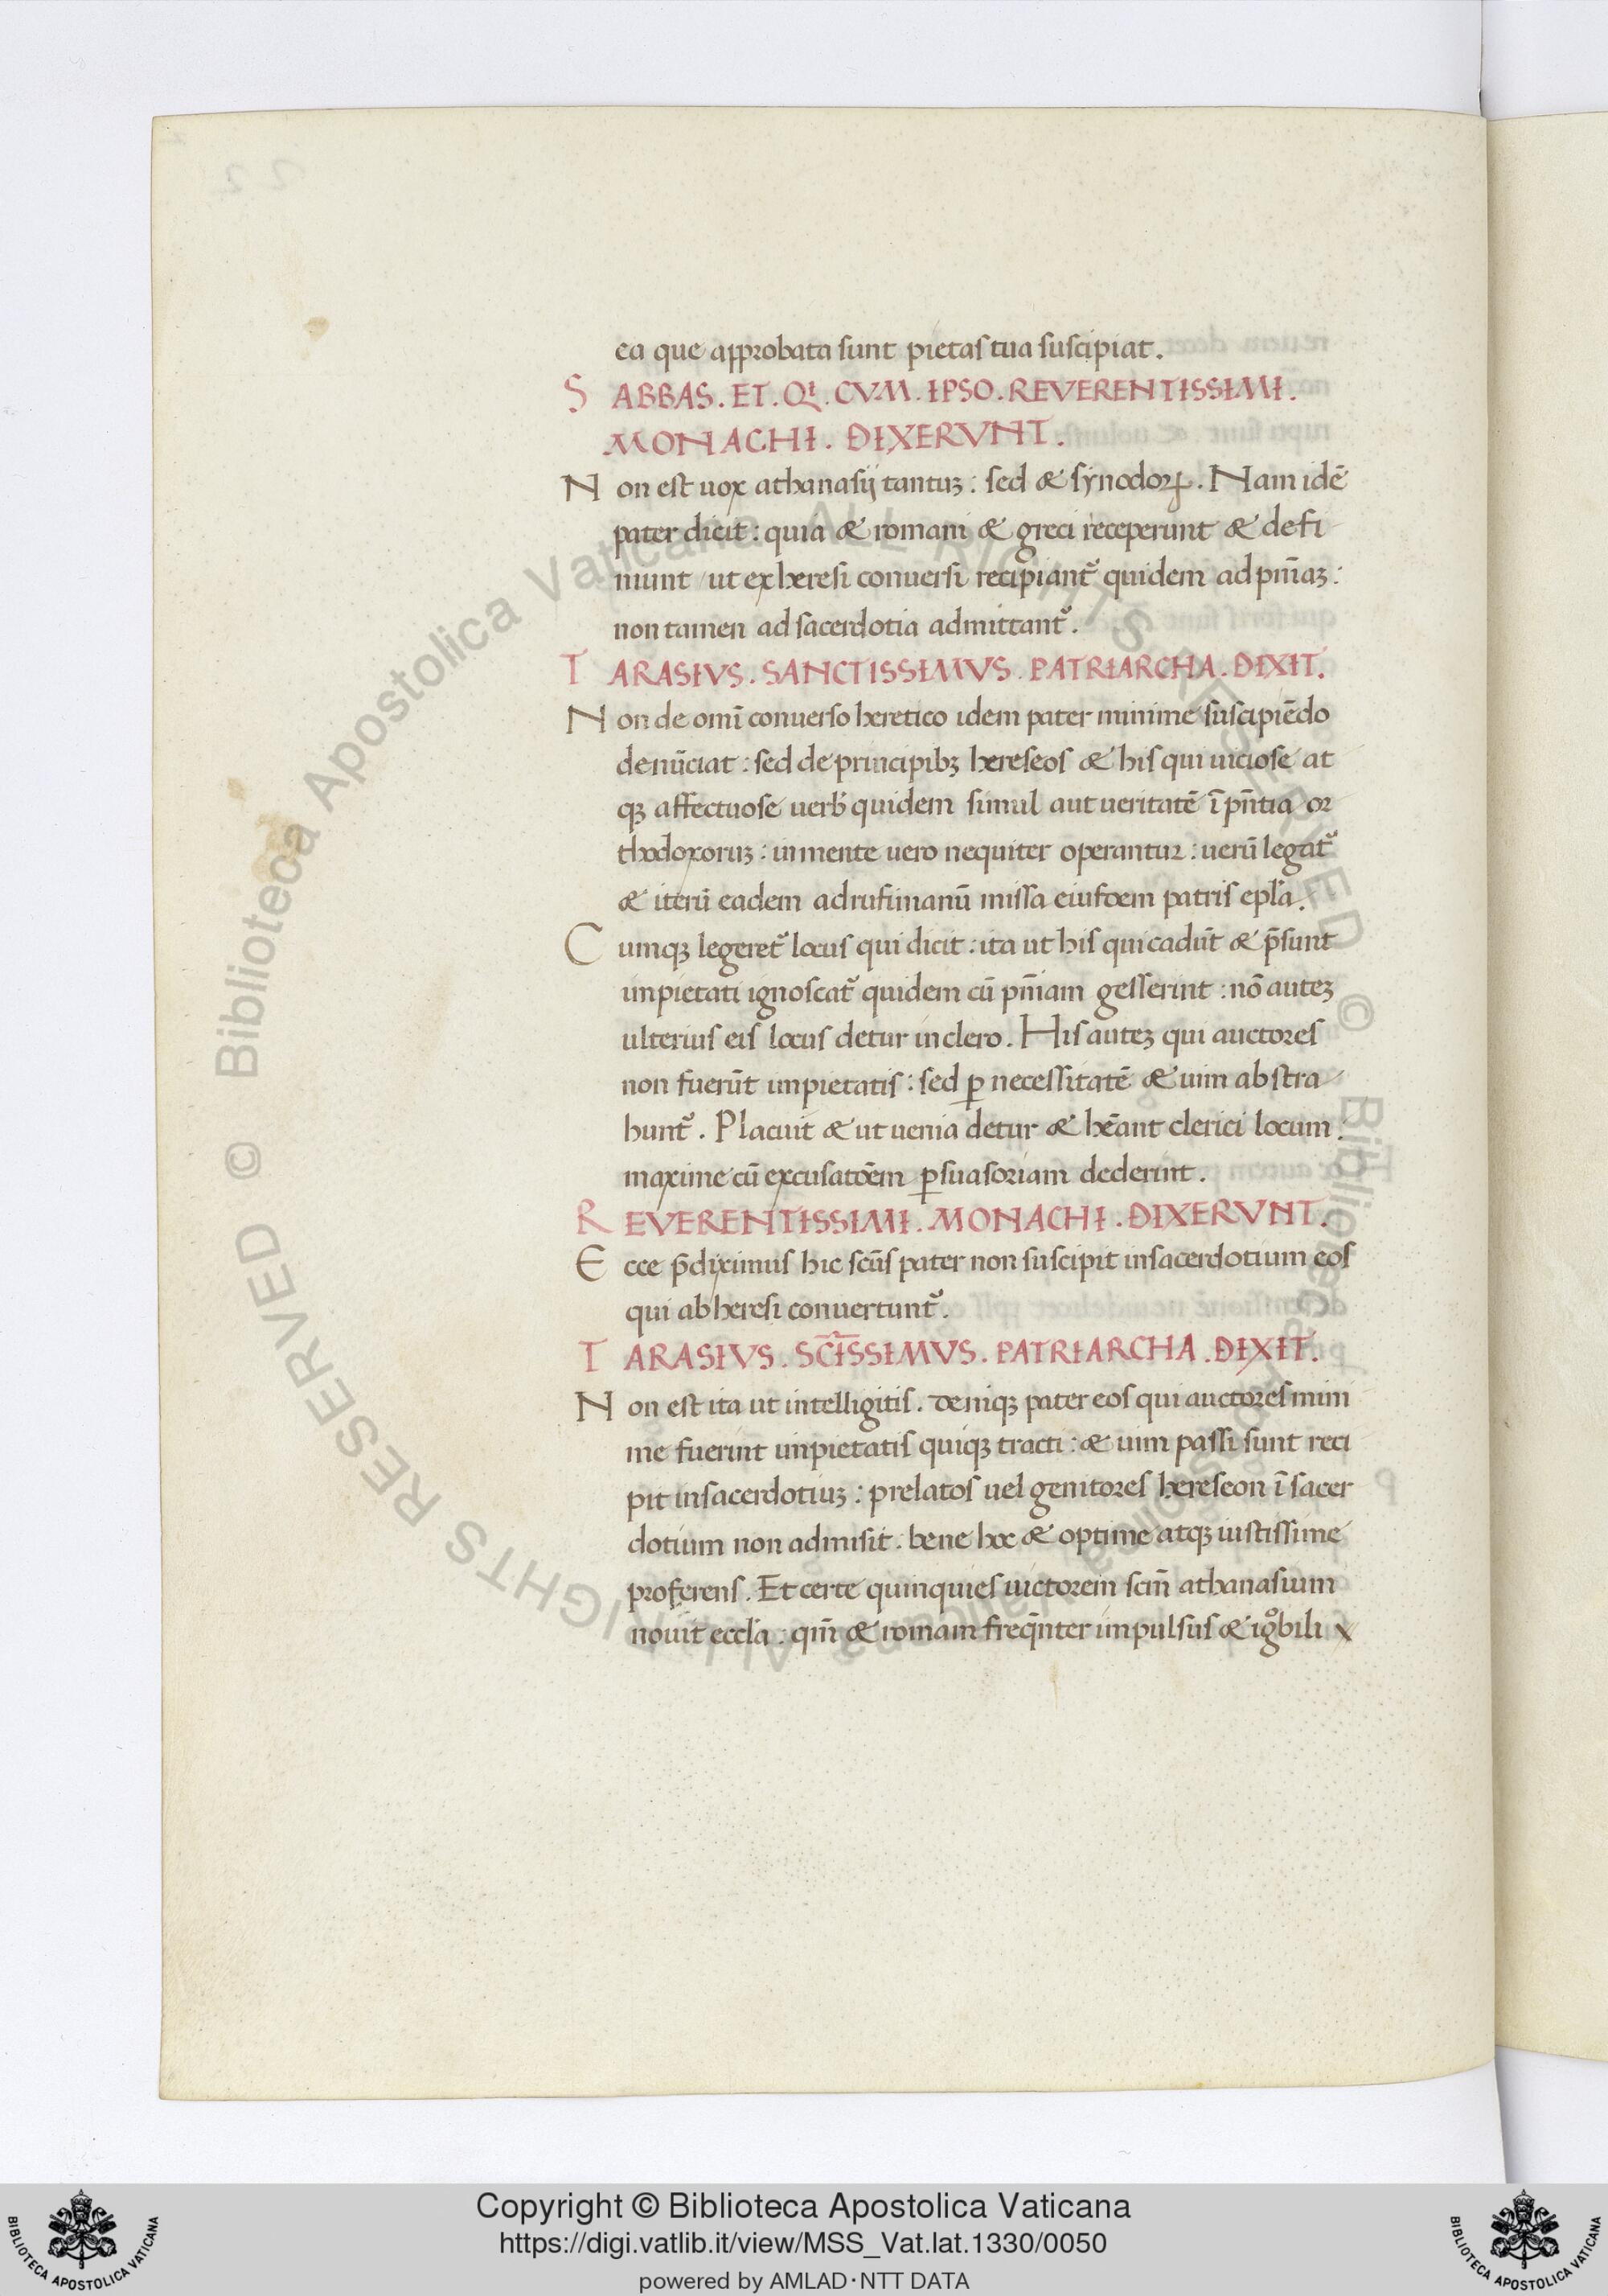 ea que approbata sunt pietas tua suscipiat.
SABBAS. ET. QI. CVM. IPSO. REVERENTISSIMI.
MONACHI. DIXERVNT.
Non est uox athanasij tantuꝫ: sed & synodoꝝ. Nam idē
pater dicit: quia & romani & greci receperunt & defi
niunt ut ex heresi conuersi recipiant᷑ quidem ad pn̄iaꝫ:
non tamen ad sacerdotia admittant᷑.
TARASIVS. SANCTISSIMVS. PATRIARCHA. DIXIT.
Non de omī conuerso heretico idem pater minime suscipiēdo
denūciat: sed de principibꝫ hereseos & his qui uiciose at
qꝫ affectuose uerb̕ quidem simul aut ueritatē ī pn̄tia or
thodoxoruꝫ: in mente uero nequiter operantur: uerū legat᷑
& iterū eadem ad rufinianū missa eiusdem patris epl̄a.
Cumqꝫ legeret᷑ locus qui dicit: ita ut his qui cadūt & p̄sunt
impietati ignoscat᷑ quidem cū pn̄iam gesserint: nō auteꝫ
ulterius eis locus detur in clero. His auteꝫ qui auctores
non fuerūt impietatis: sed ꝑ necessitatē & uim abstra
hunt᷑. Placuit & ut uenia detur & hēant clerici locum:
maxime cū excusatōem ꝑsuasoriam dederint.
REVERENTISSIMI. MONACHI. DIXERVNT.
Ecce p̄diximus hic sc̄us pater non suscipit in sacerdotium eos
qui ab heresi conuertunt᷑.
TARASIVS. SC̄ISSIMVS. PATRIARCHA. DIXIT.
Non est ita ut intelligitis. deniqꝫ pater eos qui auctores mini
me fuerint impietatis quiqꝫ tracti: & uim passi sunt reci
pit in sacerdotiuꝫ: prelatos uel genitores hereseon ī sacer
dotium non admisit. bene hoc & optime atqꝫ iustissime
proferens. Et certe quinquies uictorem scm̄ athanasium
nouit eccl̄a: qm̄ & romam freq̄nter impulsus & igͦbili
Copyright © Biblioteca Apostolica Vaticana
https://digi.vatlib.it/view/MSS_Vat.lat.1330/0050
powered by AMLAD·NTT DATA
BIBLIOTECA APOSTOLICA VATICANA
BIBLIOTECA APOSTOLICA VATICANA
© Biblioteca Apostolica Vaticana ALL RIGHTS RESERVED © Biblioteca Apostolica Vaticana ALL RIGHTS RESERVED